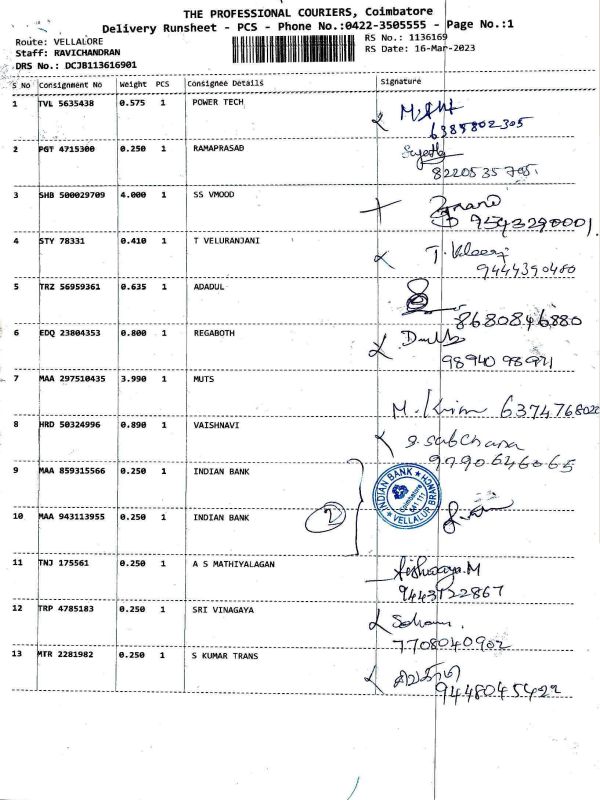 THE PROFESSIONAL COURIERS, Coimbatore
Delivery Runsheet - PCS - Phone No.:0422-3505555 - Page No.:1
Route: VELLALORE
RS No.: 1136169
Staff: RAVICHANDRAN
RS Date: 16-Mar-2023
DRS No.: DCJB113616901
S No Consignment No Weight PCS Consignee Details Signature
1 TVL 5635438 0.575 1 POWER TECH
6385802305
2 PGT 4715300 0.250 1 RAMAPRASAD
8220535795
3 SHB 500029709 4.000 1 SS VMOOD
4 STY 78331 0.410 1 T VELURANJANI
9444390480
5 TRZ 56959361 0.635 1 ADADUL
8680846880
6 EDQ 23804353 0.800 1 REGABOTH
7 MAA 297510435 3.990 1 MUTS
M. 6374768022
8 HRD 50324996 0.890 1 VAISHNAVI
9790646065
9 MAA 859315566 0.250 1 INDIAN BANK
INDIAN BANK
Coimbatore
641 111
VELLALUR BRANCH
10 MAA 943113955 0.250 1 INDIAN BANK
2
11 TNJ 175561 0.250 1 A S MATHIYALAGAN
Aishwarya.M
9443722867
12 TRP 4785183 0.250 1 SRI VINAGAYA
7708040902
13 MTR 2281982 0.250 1 S KUMAR TRANS
9448045422